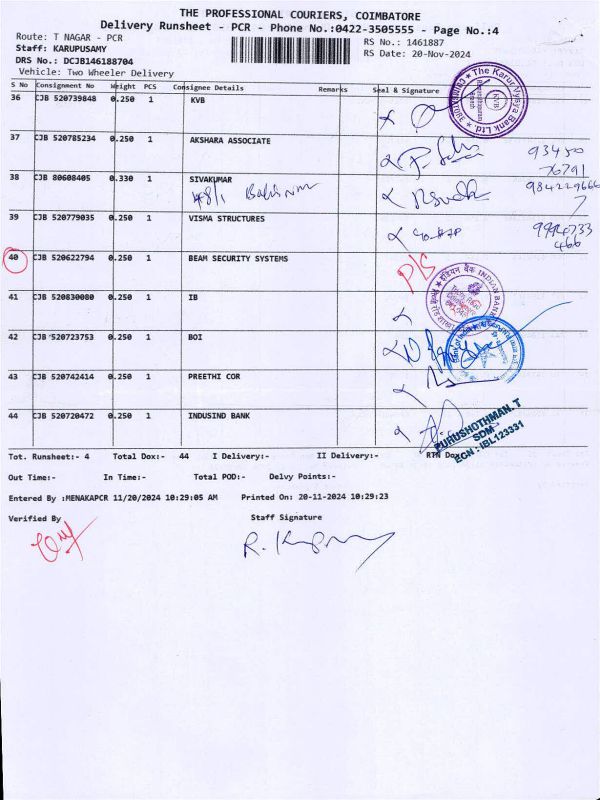 THE PROFESSIONAL COURIERS, COIMBATORE
Delivery Runsheet - PCR - Phone No.:0422-3505555 - Page No.:4
Route: T NAGAR - PCR
RS No.: 1461887
Staff: KARUPUSAMY
RS Date: 20-Nov-2024
DRS No.: DCJB146188704
Vehicle: Two Wheeler Delivery
S No Consignment No Weight PCS Consignee Details Remarks Seal & Signature
36 CJB 520739848 0.250 1 KVB
The Karur Vysya Bank Ltd
KVB
37 CJB 520785234 0.250 1 AKSHARA ASSOCIATE
93450
76791
38 CJB 80608405 0.330 1 SIVAKUMAR
9842229666
7
39 CJB 520779035 0.250 1 VISMA STRUCTURES
466
40 CJB 520622794 0.250 1 BEAM SECURITY SYSTEMS
P/S
41 CJB 520830080 0.250 1 IB
इंडियन बैंक INDIAN BANK
42 CJB 520723753 0.250 1 BOI
43 CJB 520742414 0.250 1 PREETHI COR
44 CJB 520720472 0.250 1 INDUSIND BANK
PURUSHOTHMAN. T
SDM
ECN :IBL123331
Tot. Runsheet:- 4 Total Dox:- 44 I Delivery:- II Delivery:- RTN Dox
Out Time:- In Time:- Total POD:- Delvy Points:-
Entered By :MENAKAPCR 11/20/2024 10:29:05 AM Printed On: 20-11-2024 10:29:23
Verified By Staff Signature